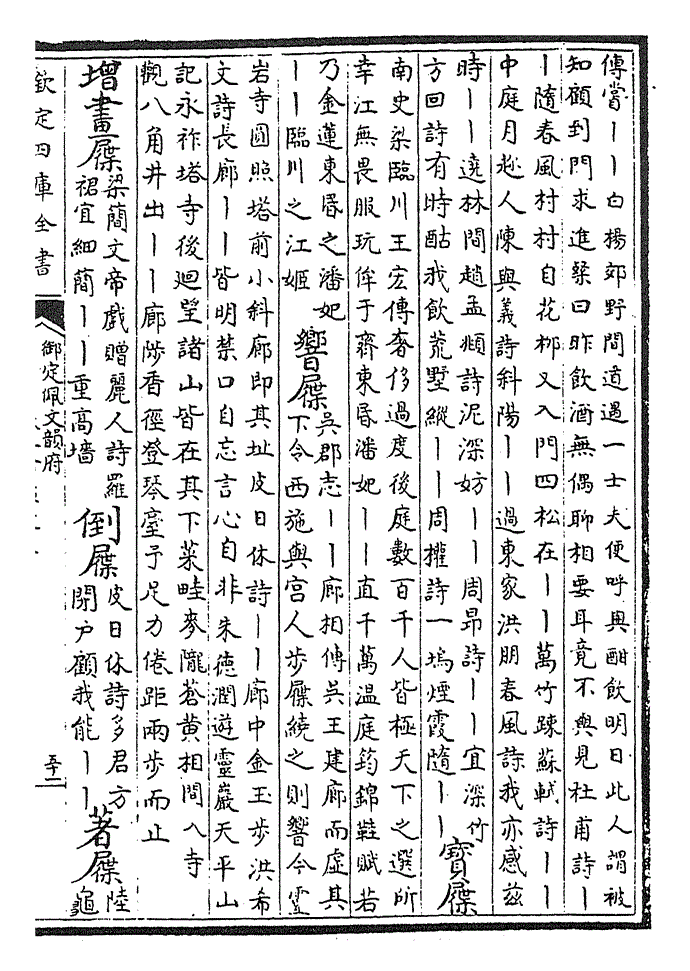 傳嘗｜｜白楊郊野間道遇一士夫便呼與酣飲明日此人謂被
知顧到門求進粲曰昨飲酒無偶聊相要耳竟不與見杜甫詩｜
｜隨春風村村自花柳又入門四松在｜｜萬竹踈蘇軾詩｜｜
中庭月趂人陳與義詩斜陽｜｜過東家洪朋春風詩我亦感兹
時｜｜遶林間趙孟頫詩泥深妨｜｜周昂詩｜｜宜深竹
方回詩有時酤我飲荒墅縱｜｜周權詩一塢煙霞隨｜｜
寶屧
南史梁臨川王宏傳奢侈過度後庭數百千人皆極天下之選所
幸江無畏服玩侔于齊東昏潘妃｜｜直千萬温庭筠錦鞋賦若
乃金蓮東昏之潘妃
｜｜臨川之江姬
響屧
吳郡志｜｜廊相傳吳王建廊而虛其
下令西施與宫人步屧繞之則響今靈
岩寺圓照塔前小斜廊即其址皮日休詩｜｜廊中金玉步洪希
文詩長廊｜｜皆明禁口自忘言心自非朱德潤遊靈巖天平山
記永祚塔寺後迴望諸山皆在其下菜畦麥隴蒼黃相間入寺
觀八角井出｜｜廊陟香徑登琴臺予足力倦距兩步而止
增畫屧
梁簡文帝戲贈麗人詩羅
裙宜細簡｜｜重高墻
倒屧
皮日休詩多君方
閉户顧我能｜｜
著屧
陸
龜
欽定四庫全書
御定佩文韻府
五十二